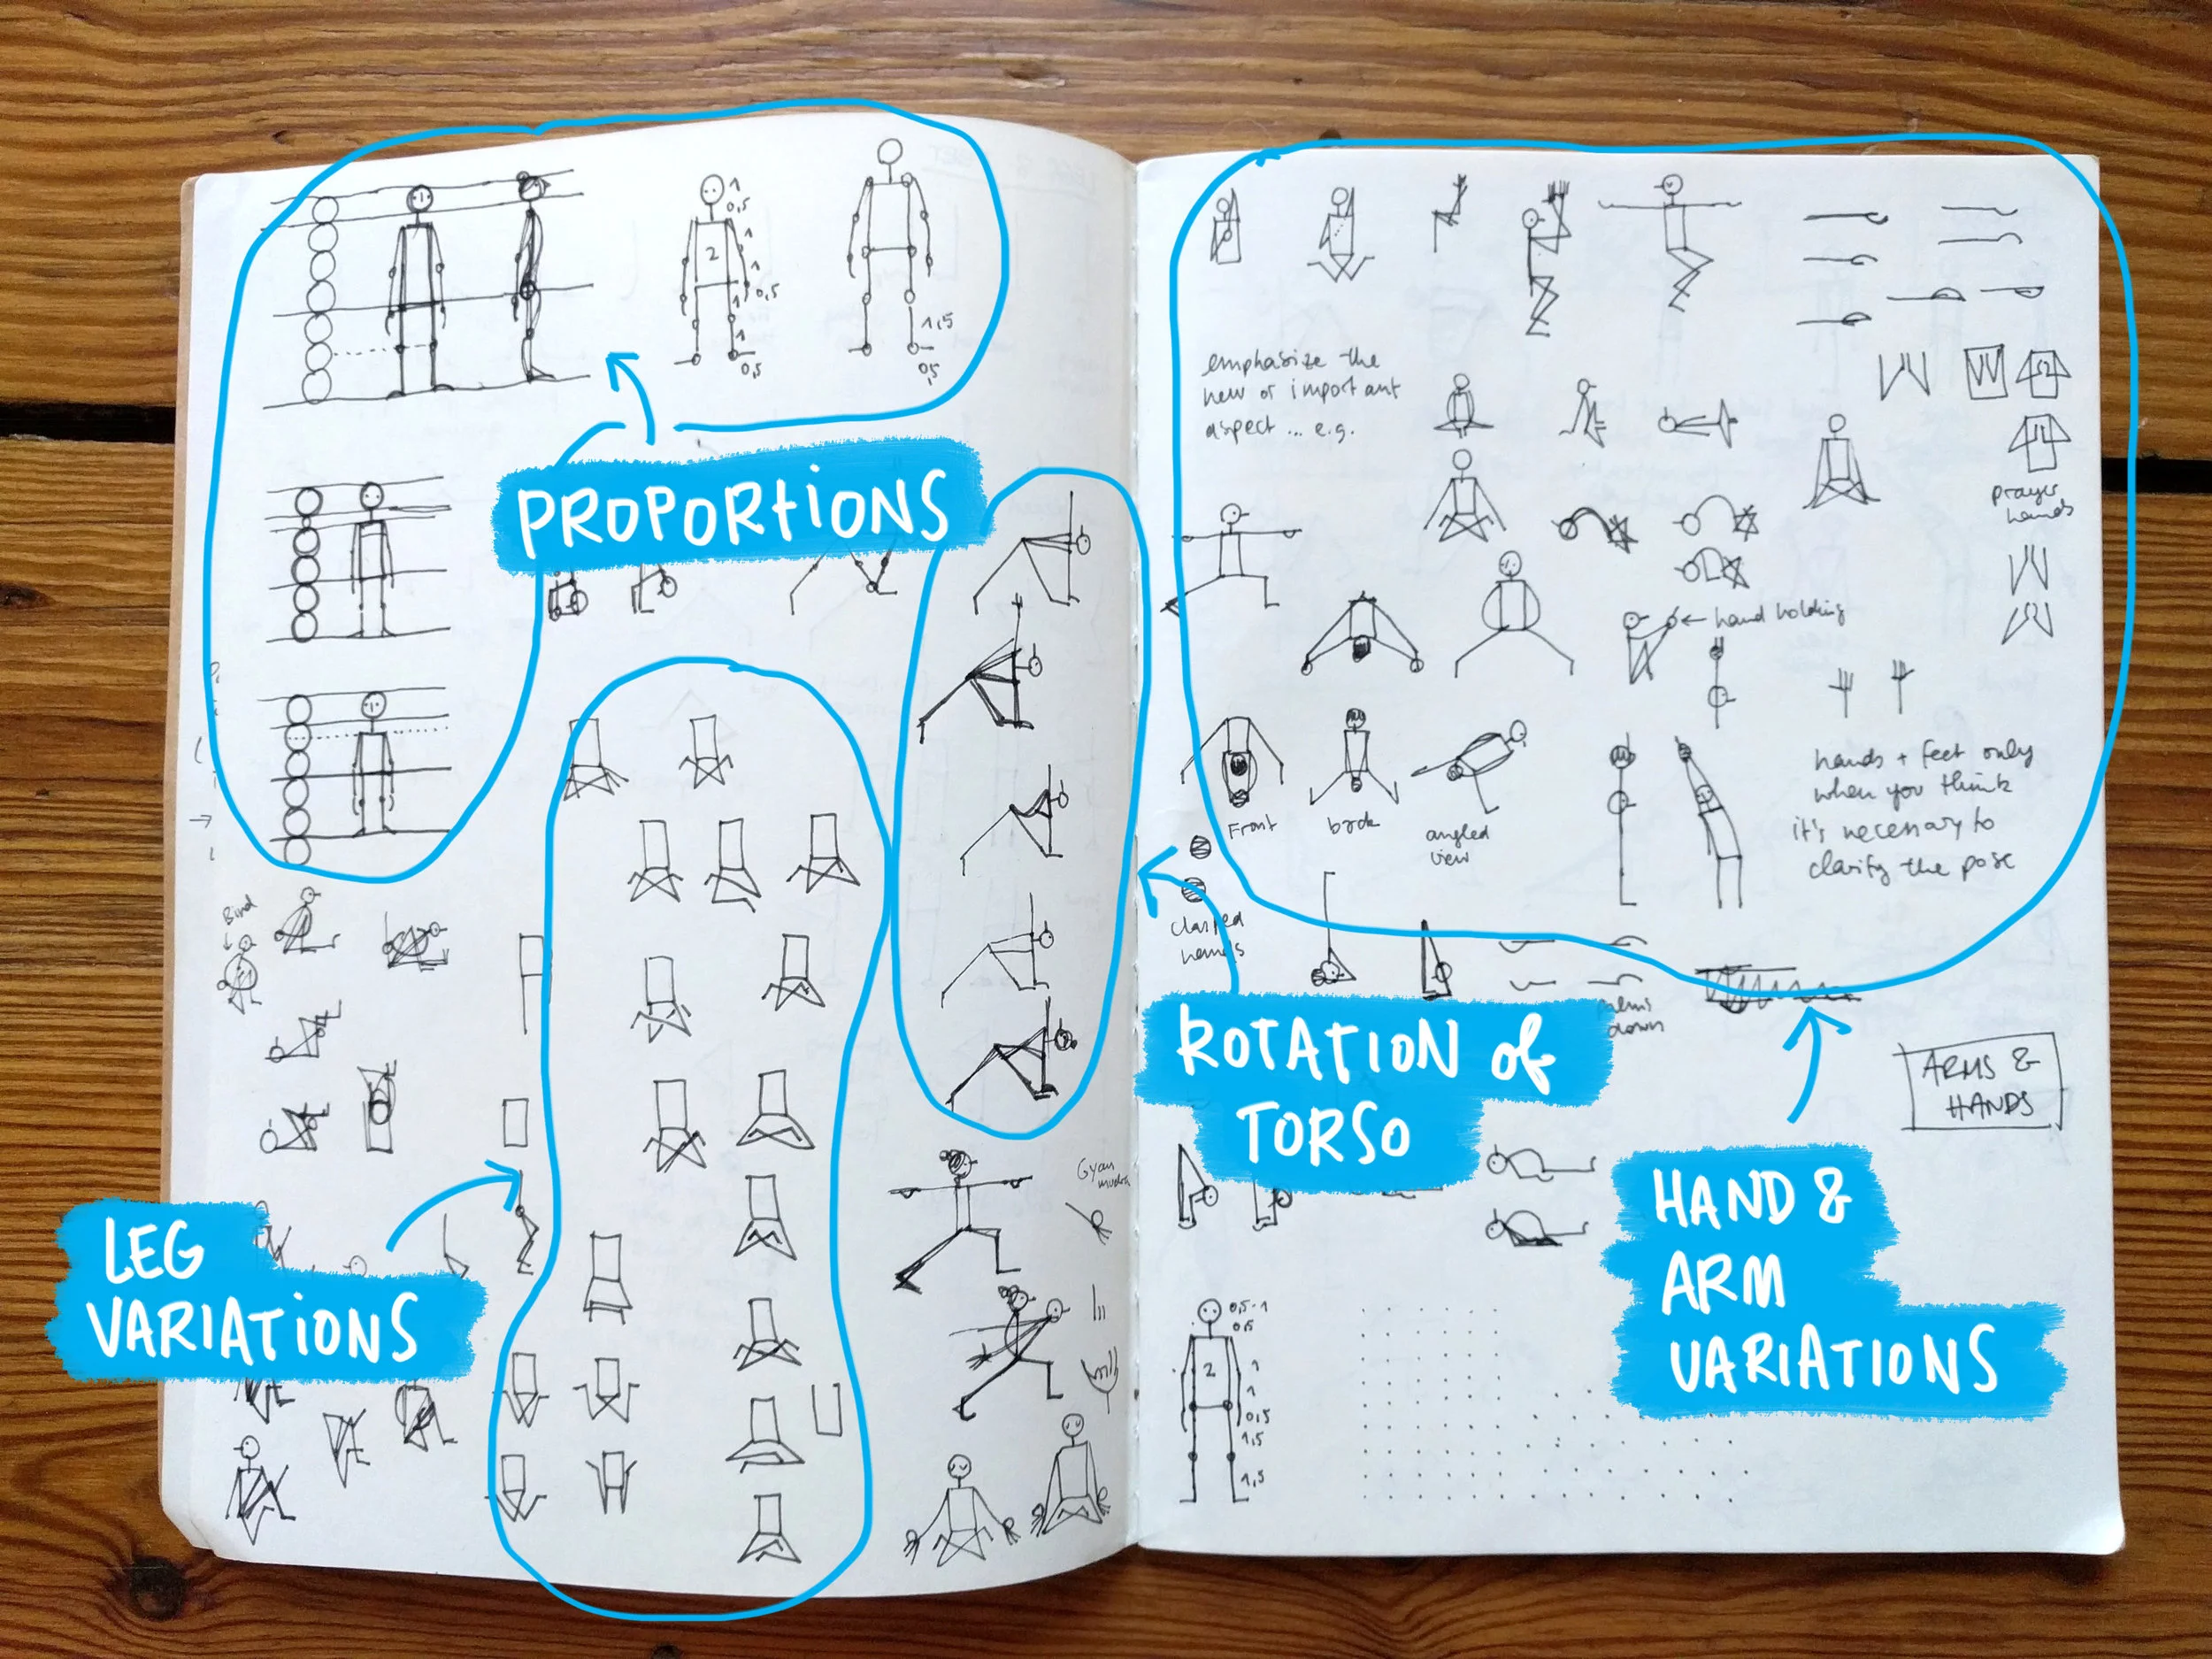 1
0,5
1
2
1
0,5
1
1
0,5
1,5
0,5
PROPORTIONS
Bird
LEG
VARIATIONS
Gyan
mudra
emphasize the
new or important
aspect ... e.g.
prayer
hands
← hand holding
Front
back
angled
view
hands + feet only
when you think
it's necessary to
clarify the pose
clasped
hands
palms
down
ROTATION of
TORSO
ARMS &
HANDS
HAND &
ARM
VARIATIONS
0,5-1
0,5
2
1
1
0,5
1,5
1,5